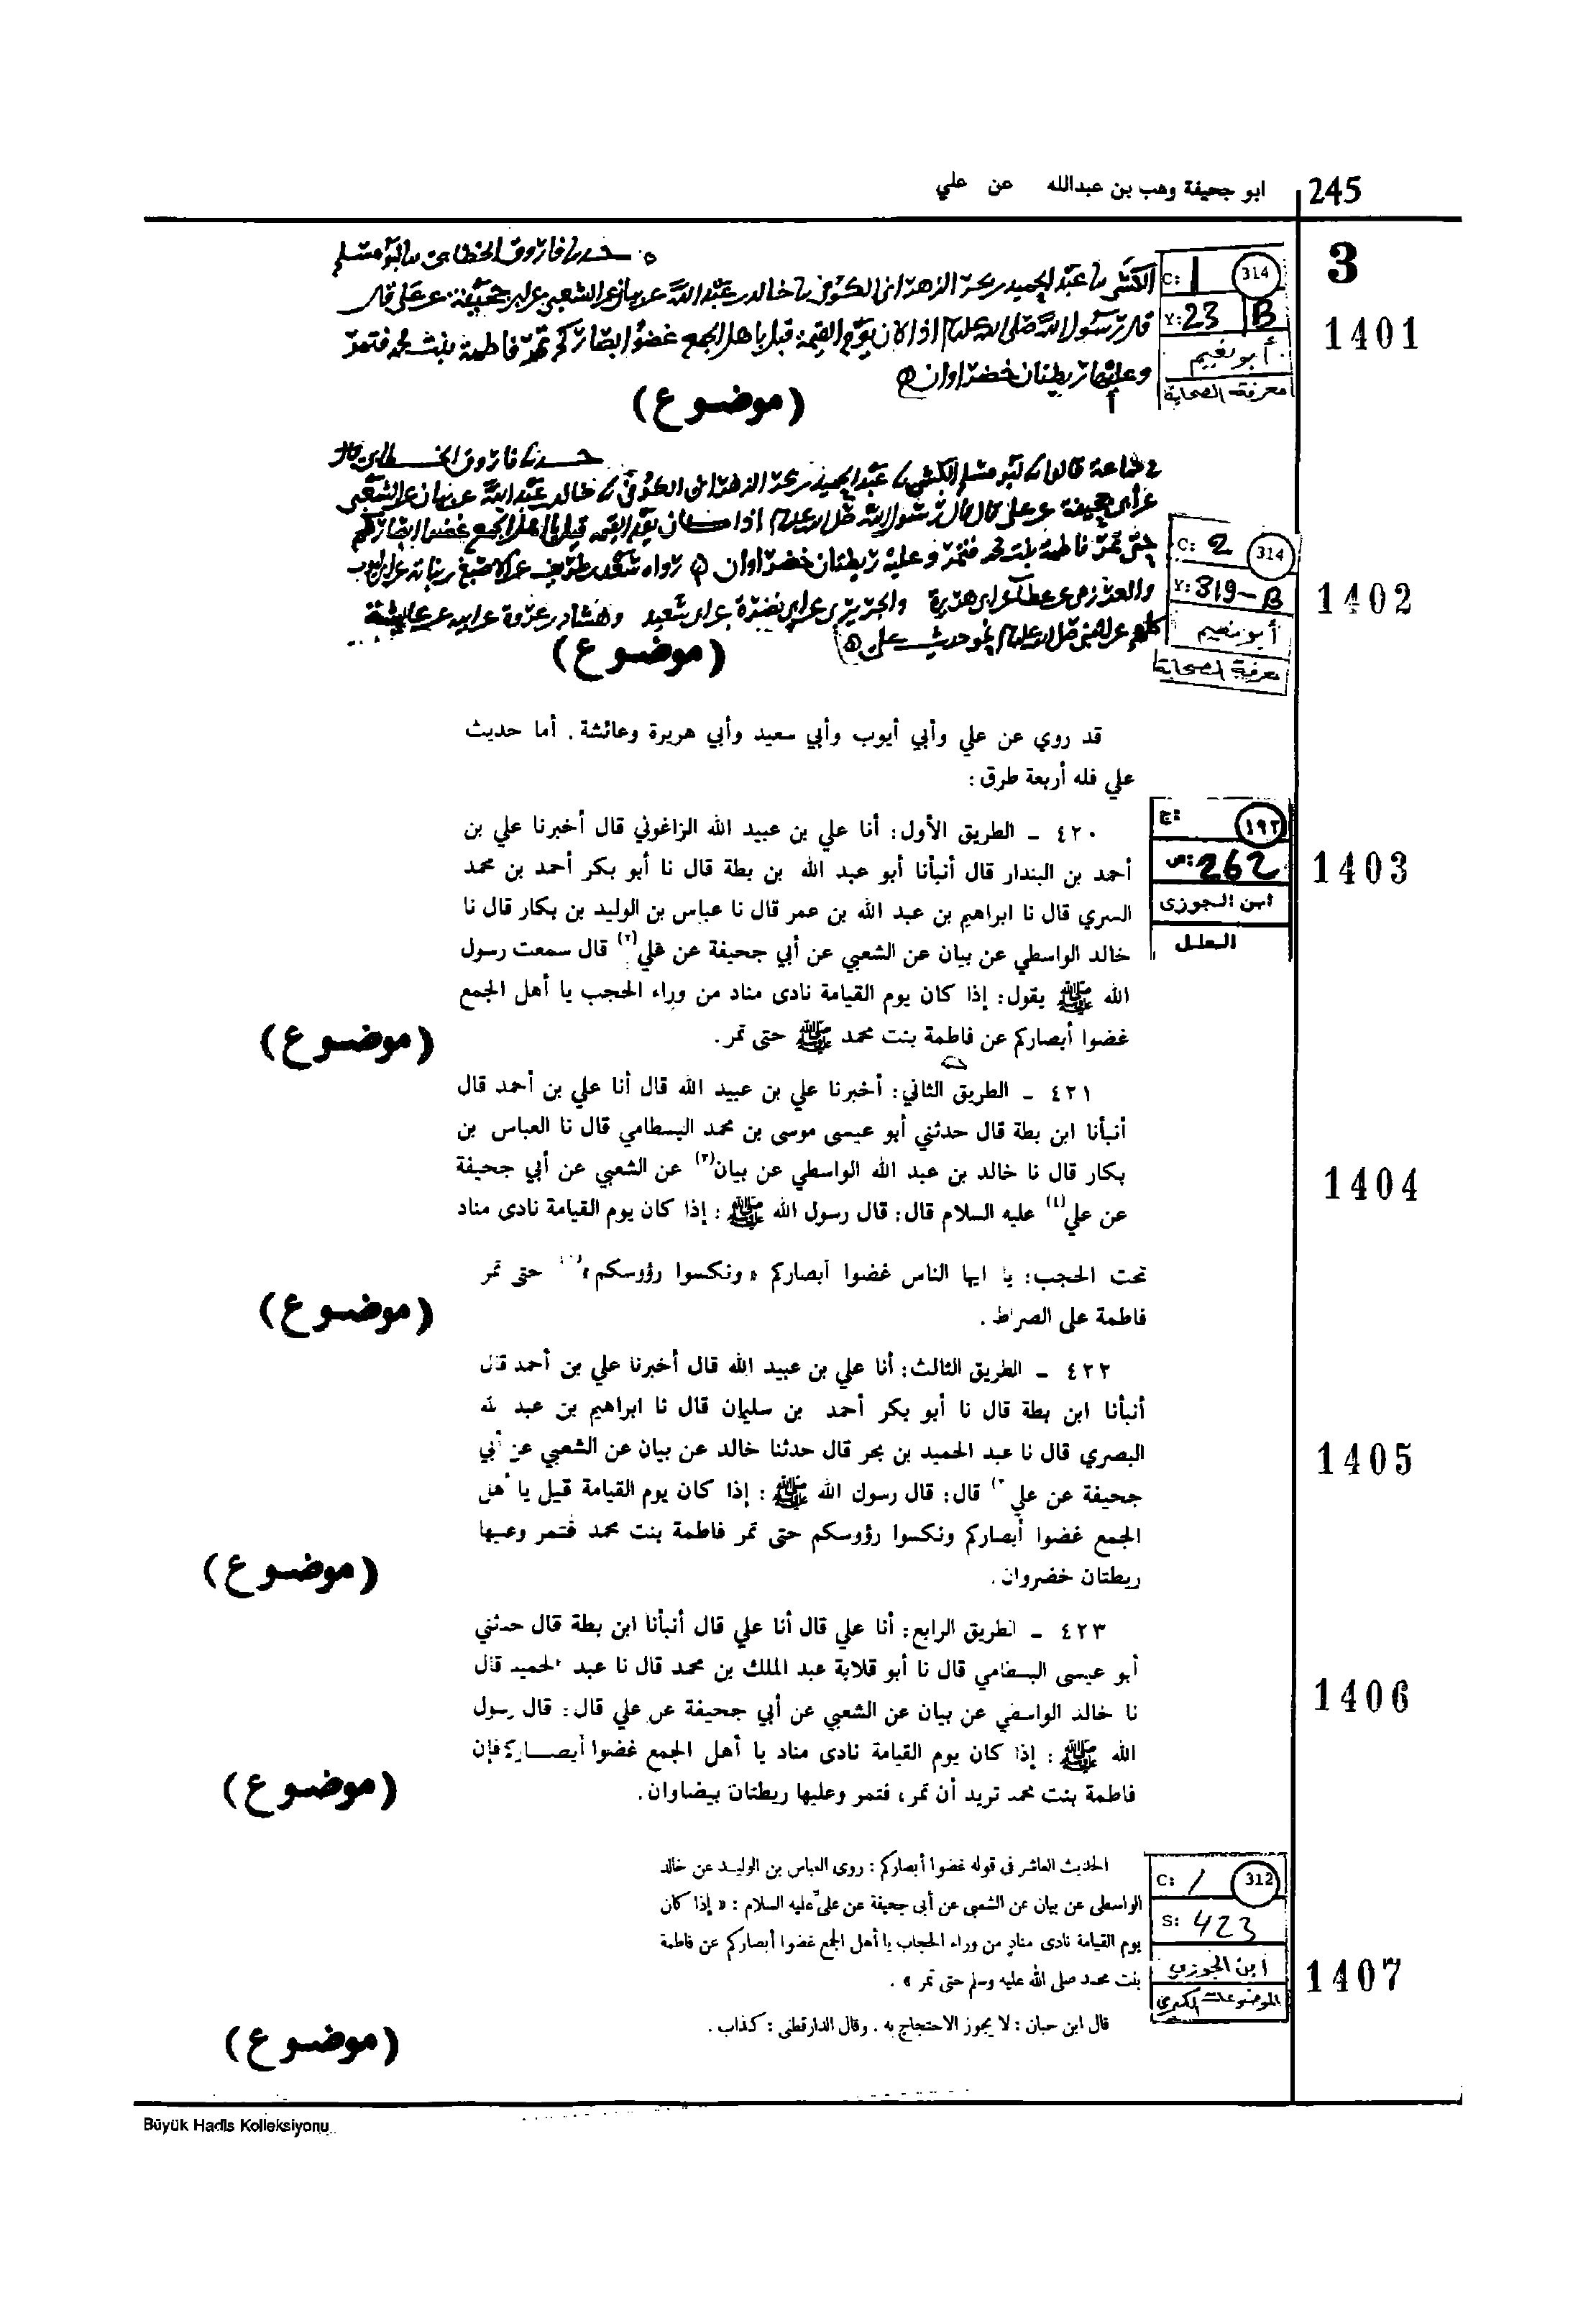 245
ابو جحيفة وهب بن عبدالله عن علي
3
حدثنا فاروق الخطابى ثنا ابو مسلم
C: 1 314
الكشى ثنا عبد الحميد بن بحر الزهرانى الكوفى ثنا خالد بن عبد الله عن بيان عن الشعبى عن ابى جحيفة عن على قال
Y: 23 B
1401
قال رسول الله صلى الله عليه وسلم اذا كان يوم القيمة قيل يا اهل الجمع غضوا ابصاركم حتى تمر فاطمة بنت محمد فتمر
أبو نعيم
وعليها ريطتان خضراوان
معرفة الصحابة
(موضوع)
حدثنا فاروق الخطابى
فى جماعة قالوا ثنا ابو مسلم الكشى ثنا عبد الحميد بن بحر الزهرانى الكوفى ثنا خالد بن عبد الله عن بيان عن الشعبى
عن ابى جحيفة عن على قال قال رسول الله صلى الله عليه وسلم اذا كان يوم القيمة قيل يا اهل الجمع غضوا ابصاركم
C: 2 314
حتى تمر فاطمة بنت محمد فتمر وعليه ريطتان خضراوان رواه سعد بن طريف عن الاصبغ بن نباتة عن ابى ايوب
Y: 319-B
1402
والعرزمى عن عطا عن ابى هريرة والجريرى عن ابى نضرة عن ابى سعيد وهشام بن عروة عن ابيه عن عائشة
أبو نعيم
كلهم عن النبى صلى الله عليه وسلم نحو حديث على
معرفة الصحابة
(موضوع)
قد روي عن علي وأبي أيوب وأبي سعيد وأبي هريرة وعائشة . أما حديث
علي فله أربعة طرق :
ج: ١٩٢
٤٢٠ ـ الطريق الأول : أنا علي بن عبيد الله الزاغوني قال أخبرنا علي بن
ص: 262
1403
أحمد بن البندار قال أنبأنا أبو عبد الله بن بطة قال نا أبو بكر أحمد بن محمد
ابن الجوزى
السري قال نا ابراهيم بن عبد الله بن عمر قال نا عباس بن الوليد بن بكار قال نا
العلل
خالد الواسطي عن بيان عن الشعبي عن أبي جحيفة عن علي(٢) قال سمعت رسول
الله ﷺ يقول : إذا كان يوم القيامة نادى مناد من وراء الحجب يا أهل الجمع
غضوا أبصاركم عن فاطمة بنت محمد ﷺ حتى تمر .
(موضوع)
٤٢١ ـ الطريق الثاني : أخبرنا علي بن عبيد الله قال أنا علي بن أحمد قال
أنبأنا ابن بطة قال حدثني أبو عيسى موسى بن محمد البسطامي قال نا العباس بن
بكار قال نا خالد بن عبد الله الواسطي عن بيان(٣) عن الشعبي عن أبي جحيفة
1404
عن علي(٤) عليه السلام قال : قال رسول الله ﷺ : إذا كان يوم القيامة نادى مناد
تحت الحجب : يا ايها الناس غضوا أبصاركم « ونكسوا رؤوسكم » حتى تمر
فاطمة على الصراط .
(موضوع)
٤٢٢ ـ الطريق الثالث : أنا علي بن عبيد الله قال أخبرنا علي بن أحمد قال
أنبأنا ابن بطة قال نا أبو بكر أحمد بن سليمان قال نا ابراهيم بن عبد الله
البصري قال نا عبد الحميد بن بحر قال حدثنا خالد عن بيان عن الشعبي عن أبي
1405
جحيفة عن علي قال : قال رسول الله ﷺ : إذا كان يوم القيامة قيل يا أهل
الجمع غضوا أبصاركم ونكسوا رؤوسكم حتى تمر فاطمة بنت محمد فتمر وعليها
ريطتان خضروان .
(موضوع)
٤٢٣ ـ الطريق الرابع : أنا علي قال أنا علي قال أنبأنا ابن بطة قال حدثني
أبو عيسى البسطامي قال نا أبو قلابة عبد الملك بن محمد قال نا عبد الحميد قال
1406
نا خالد الواسطي عن بيان عن الشعبي عن أبي جحيفة عن علي قال : قال رسول
الله ﷺ : إذا كان يوم القيامة نادى مناد يا أهل الجمع غضوا أبصاركم فإن
فاطمة بنت محمد تريد أن تمر ، فتمر وعليها ريطتان بيضاوان .
(موضوع)
الحديث العاشر فى قوله غضوا أبصاركم : روى العباس بن الوليد عن خالد
C: 1 312
الواسطى عن بيان عن الشعبى عن أبى جحيفة عن على عليه السلام : « إذا كان
S: 423
يوم القيامة نادى مناد من وراء الحجاب يا أهل الجمع غضوا أبصاركم عن فاطمة
ابن الجوزي
1407
بنت محمد صلى الله عليه وسلم حتى تمر » .
الموضوعات الكبرى
قال ابن حبان : لا يجوز الاحتجاج به . وقال الدارقطنى : كذاب .
(موضوع)
Büyük Hadis Kolleksiyonu